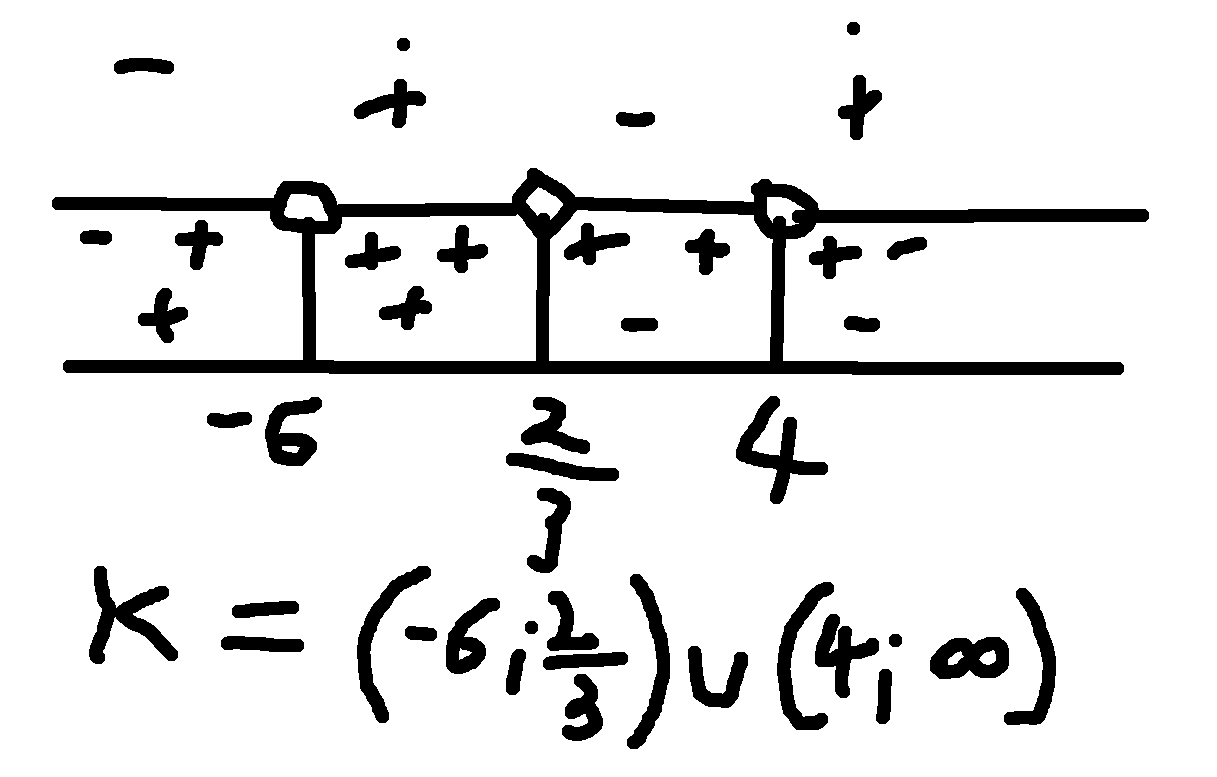 - + - +
- + + + + + + -
+ + - -
-6 2/3 4
K = (-6; 2/3) ∪ (4; ∞)